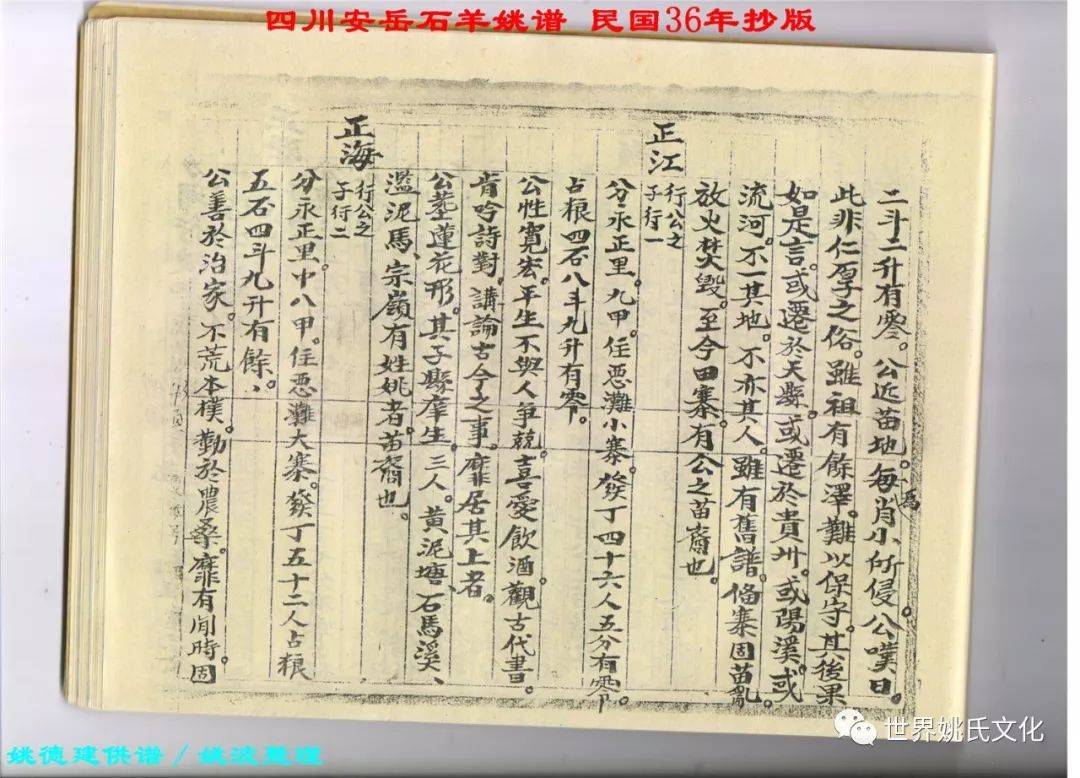 四川安岳石羊姚谱 民国36年抄版
二斗二升有零。公近苗地。每为肖小所侵。公嘆曰。
此非仁厚之俗。雖祖有餘澤。難以保守。其後果
如是言。或遷於天縣。或遷於貴州。或陽溪。或
流河。不一其地。不亦其人。雖有舊譜。偹寨固苗亂
放火焚毀。至今田寨。有公之苗裔也。
正江
行公之
子行一
分永正里。九甲。住悪灘小寨。發丁四十六人五分有零。
占粮四石八斗九升有零。
公性寬宏。平生不與人爭兢。喜愛飲酒觀古代書。
肯吟詩對。講論古今之事。靡居其上者。
公塟蓮花形。其子縣庠生。三人。黄泥塘、石馬溪、
濫泥馬、宗嶺有姓姚者。苗裔也。
正海
行公之
子行二
分永正里。中八甲。住悪灘大寨。發丁五十二人占粮
五石四斗九升有餘、
公善於治家。不荒本樸。勤於農桑。靡有閒時固
世界姚氏文化
姚德建供谱/姚波整理